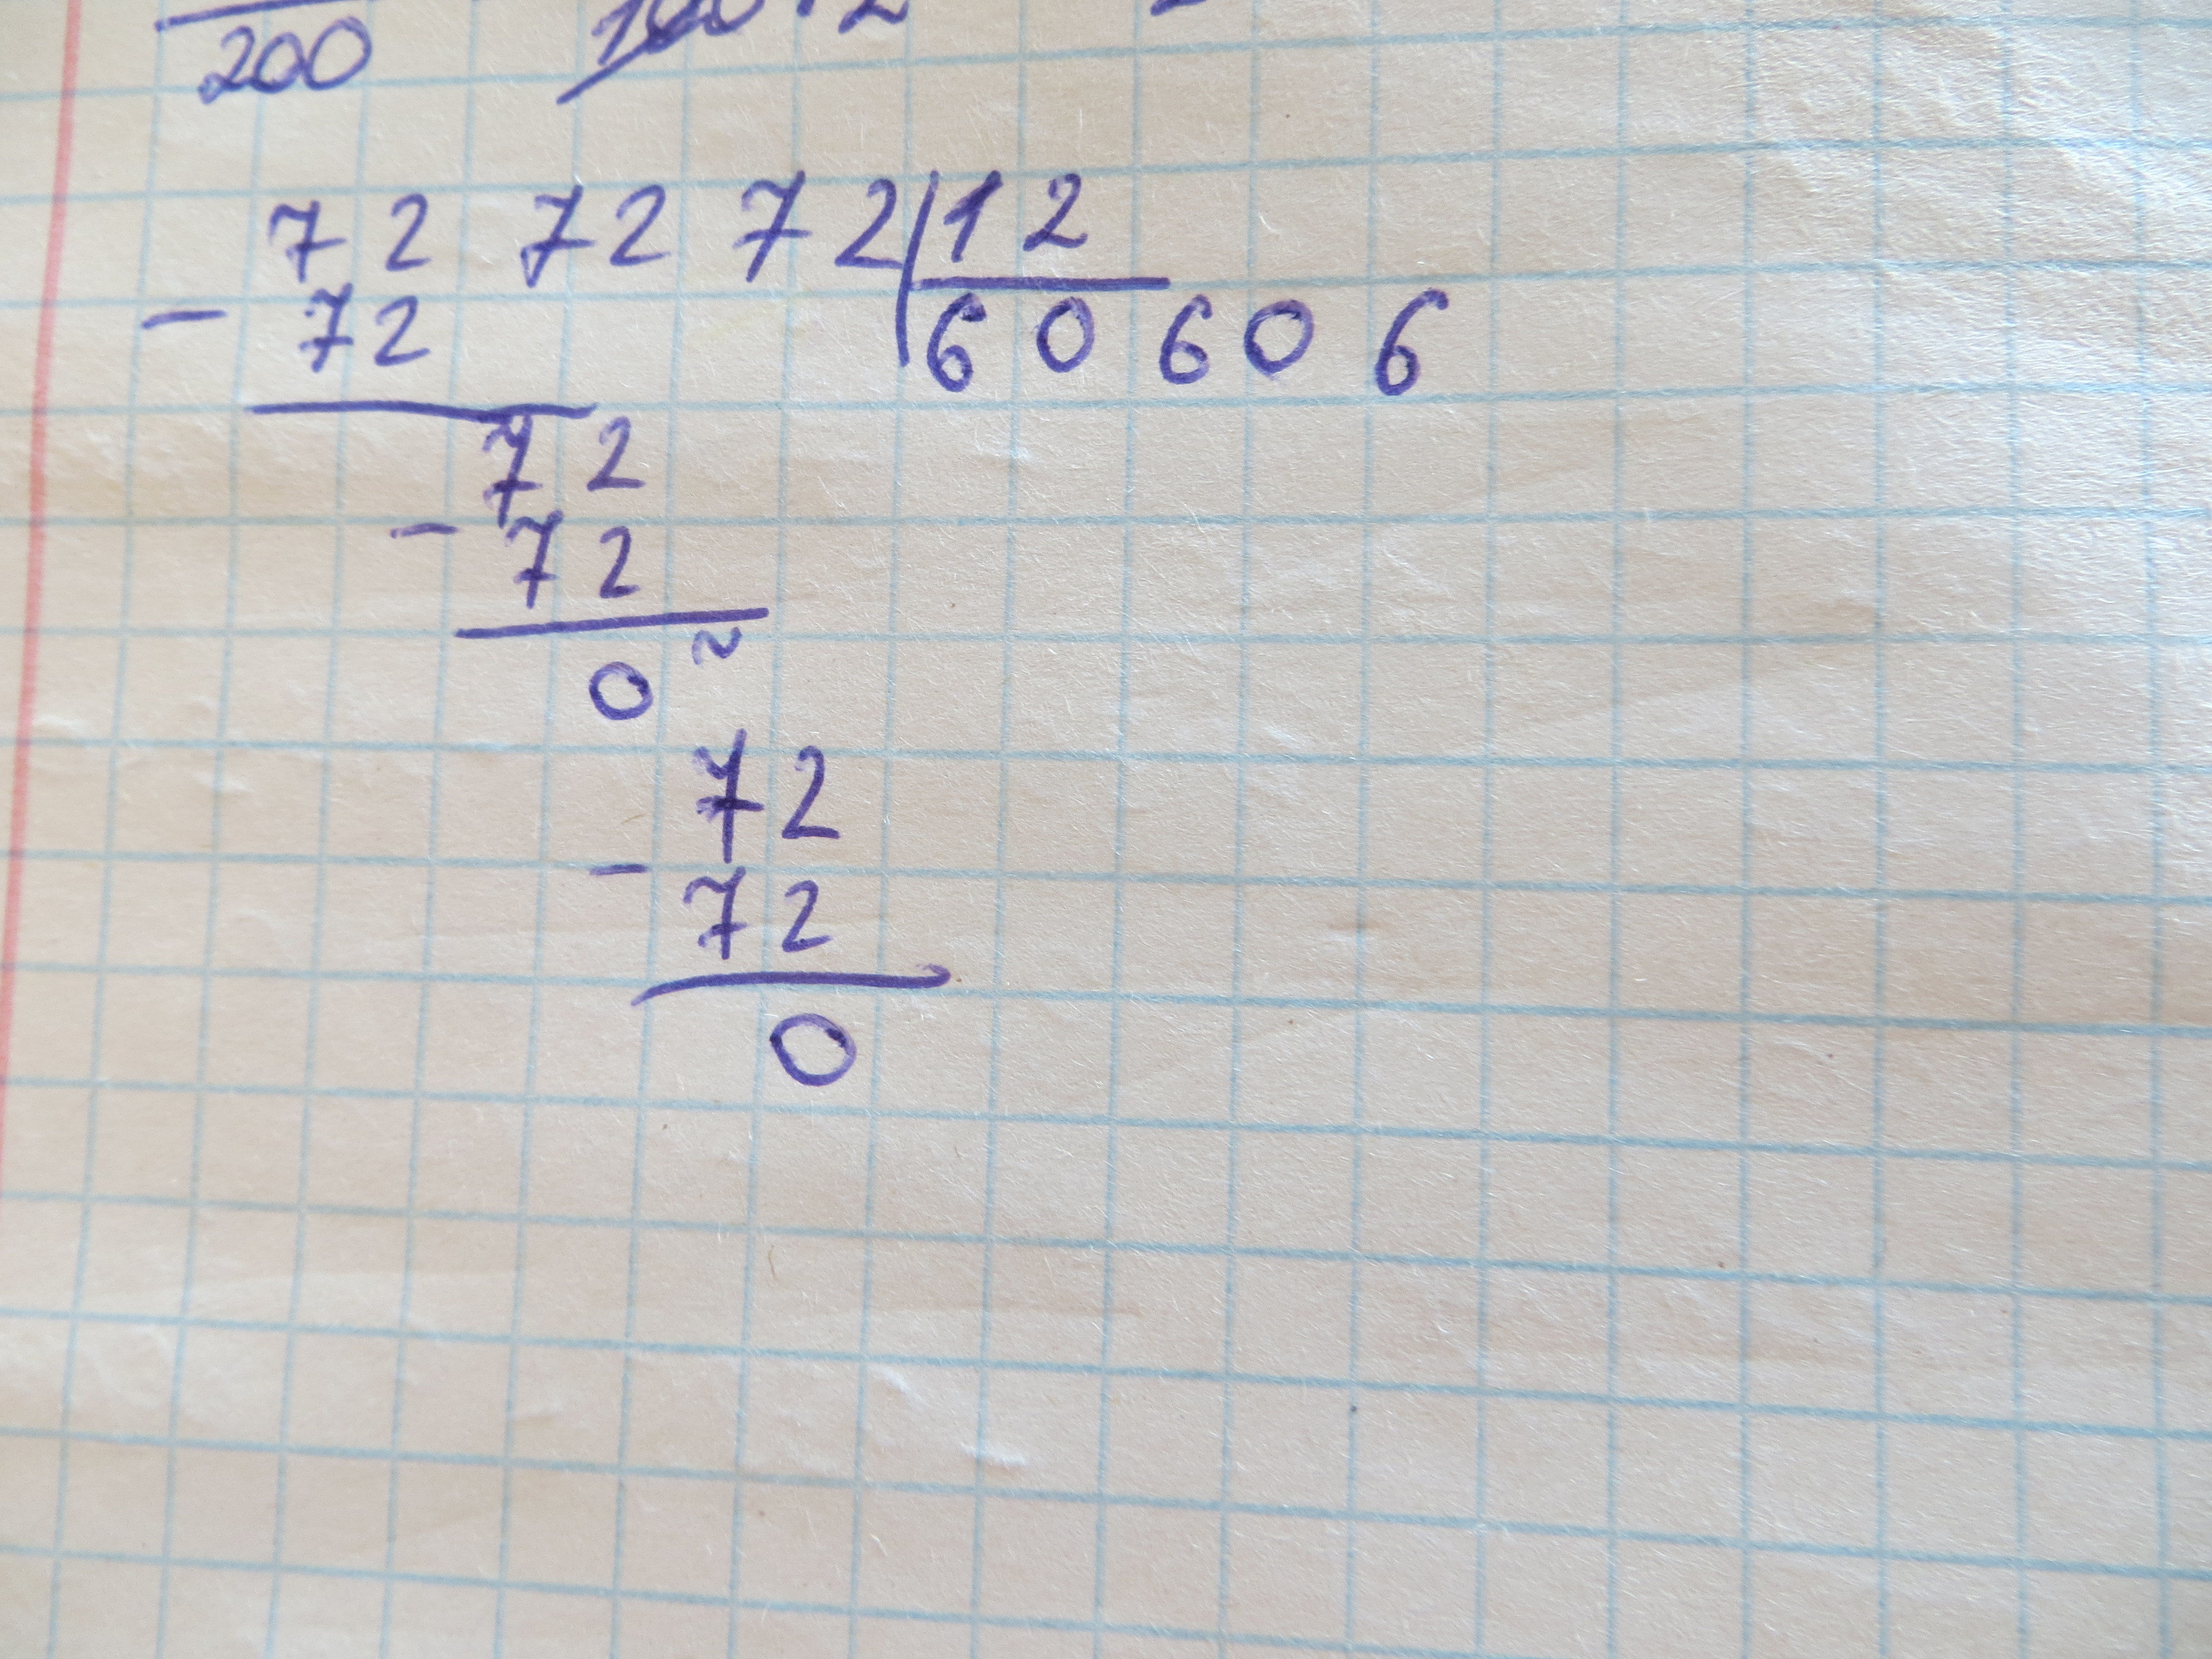 200
72 72 72 12
- 72 60606
72
- 72
0
72
- 72
0